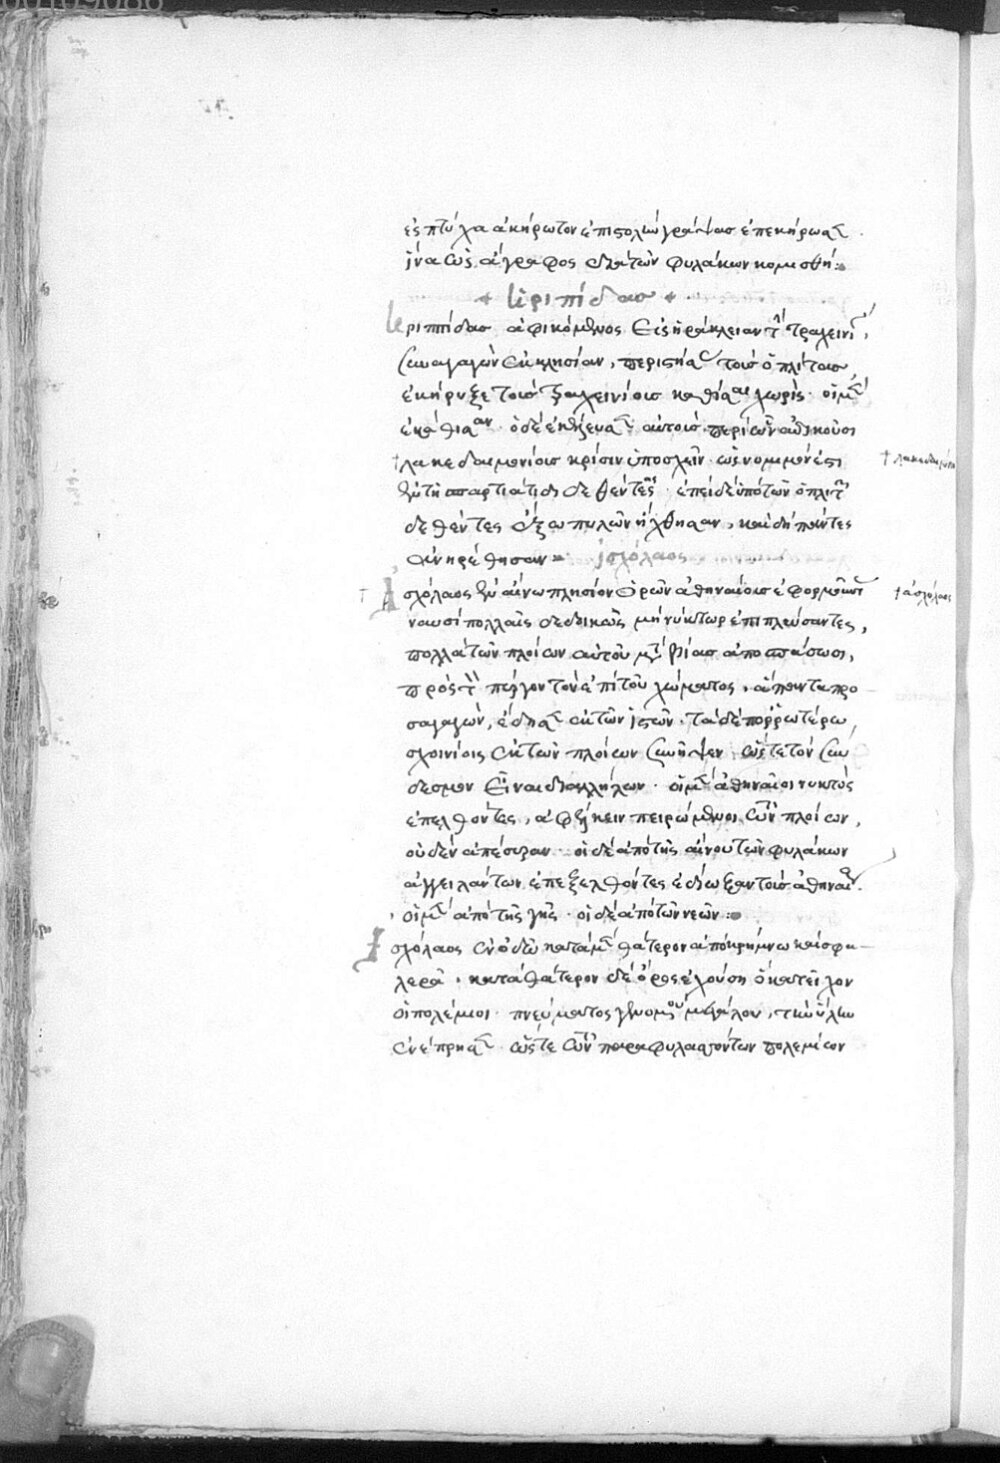 ἐς πτύχα ἀκήρωτον ἐπιστολὴν γράψας ἐπεκήρωσε
ἵνα ὡς ἄγραφος διὰ τῶν φυλάκων κομισθῇ:
+ ἱεριπίδας +
ἱεριππίδας ἀφικόμενος εἰς ἡράκλειαν τὴν τραχεινίαν,
συναγαγὼν ἐκκλησίαν, περιστήσας τοὺς ὁπλίτας,
ἐκήρυξε τοὺς τραχεινίους καθίσαι χωρίς· οἱ μὲν
ἐκάθισαν· ὁ δὲ ἐκέλευσεν αὐτοὺς περὶ ὧν ἀδικοῦσι
+ λακεδαιμονίοις κρίσιν ὑποσχεῖν· ὡς νομιμόν ἐστι
ἐν τῇ σπαρτιάτιδι δεθέντες· ἐπεὶ δὲ ὑπὸ τῶν ὁπλιτῶν
δεθέντες ἔξω πυλῶν ἤχθησαν, καὶ δὴ πάντες
ἀνηρέθησαν ἰσχόλαος
+ Ἰσχόλαος ἐν αἴνω πλησίον ὁρῶν ἀθηναίους ἐφορμοῦντας
ναυσὶ πολλαῖς δεδοικὼς μὴ νύκτωρ ἐπιπλεύσαντες,
πολλὰ τῶν πλοίων αὐτοῦ μετὰ βίας ἀποσπάσωσι,
πρὸς τὸν πύργον τὸν ἐπὶ τοῦ χώματος, ἅπαντα προ
σαγαγὼν, ἔδησε ἐκ τῶν ἱστῶν· τὰ δὲ πορρωτέρω,
σχοινίοις ἐκ τῶν πλοίων συνῆψεν, ὥστε τὸν σύν
δεσμον εἶναι δι' ἀλλήλων· οἱ μὲν ἀθηναῖοι νυκτὸς
ἐπελθόντες, ἀφέλκειν πειρώμενοι τῶν πλοίων,
οὐδὲν ἀπέσυραν· οἱ δὲ ἀπὸ τῆς αἴνου τῶν φυλάκων
ἀγγειλάντων ἐπεξελθόντες ἐδίωξαν τοὺς ἀθηναίους.
οἱ μὲν ἀπὸ τῆς γῆς· οἱ δὲ ἀπὸ τῶν νεῶν:
Ἰσχόλαος ἐν ὁδῷ κατὰ μὲν θάτερον ἀποκρήμνω καὶ σφα
λερᾷ, κατὰ θάτερον δὲ ὄρος ἐχούση ὃ κατεῖχον
οἱ πολέμιοι· πνεύματος γενομένου μεγάλου, τὴν ὕλην
ἐνέπρησε· ὥστε τῶν παραφυλασσόντων πολεμίων
+ λακεδαιμονίοις
+ ἀσχόλαος